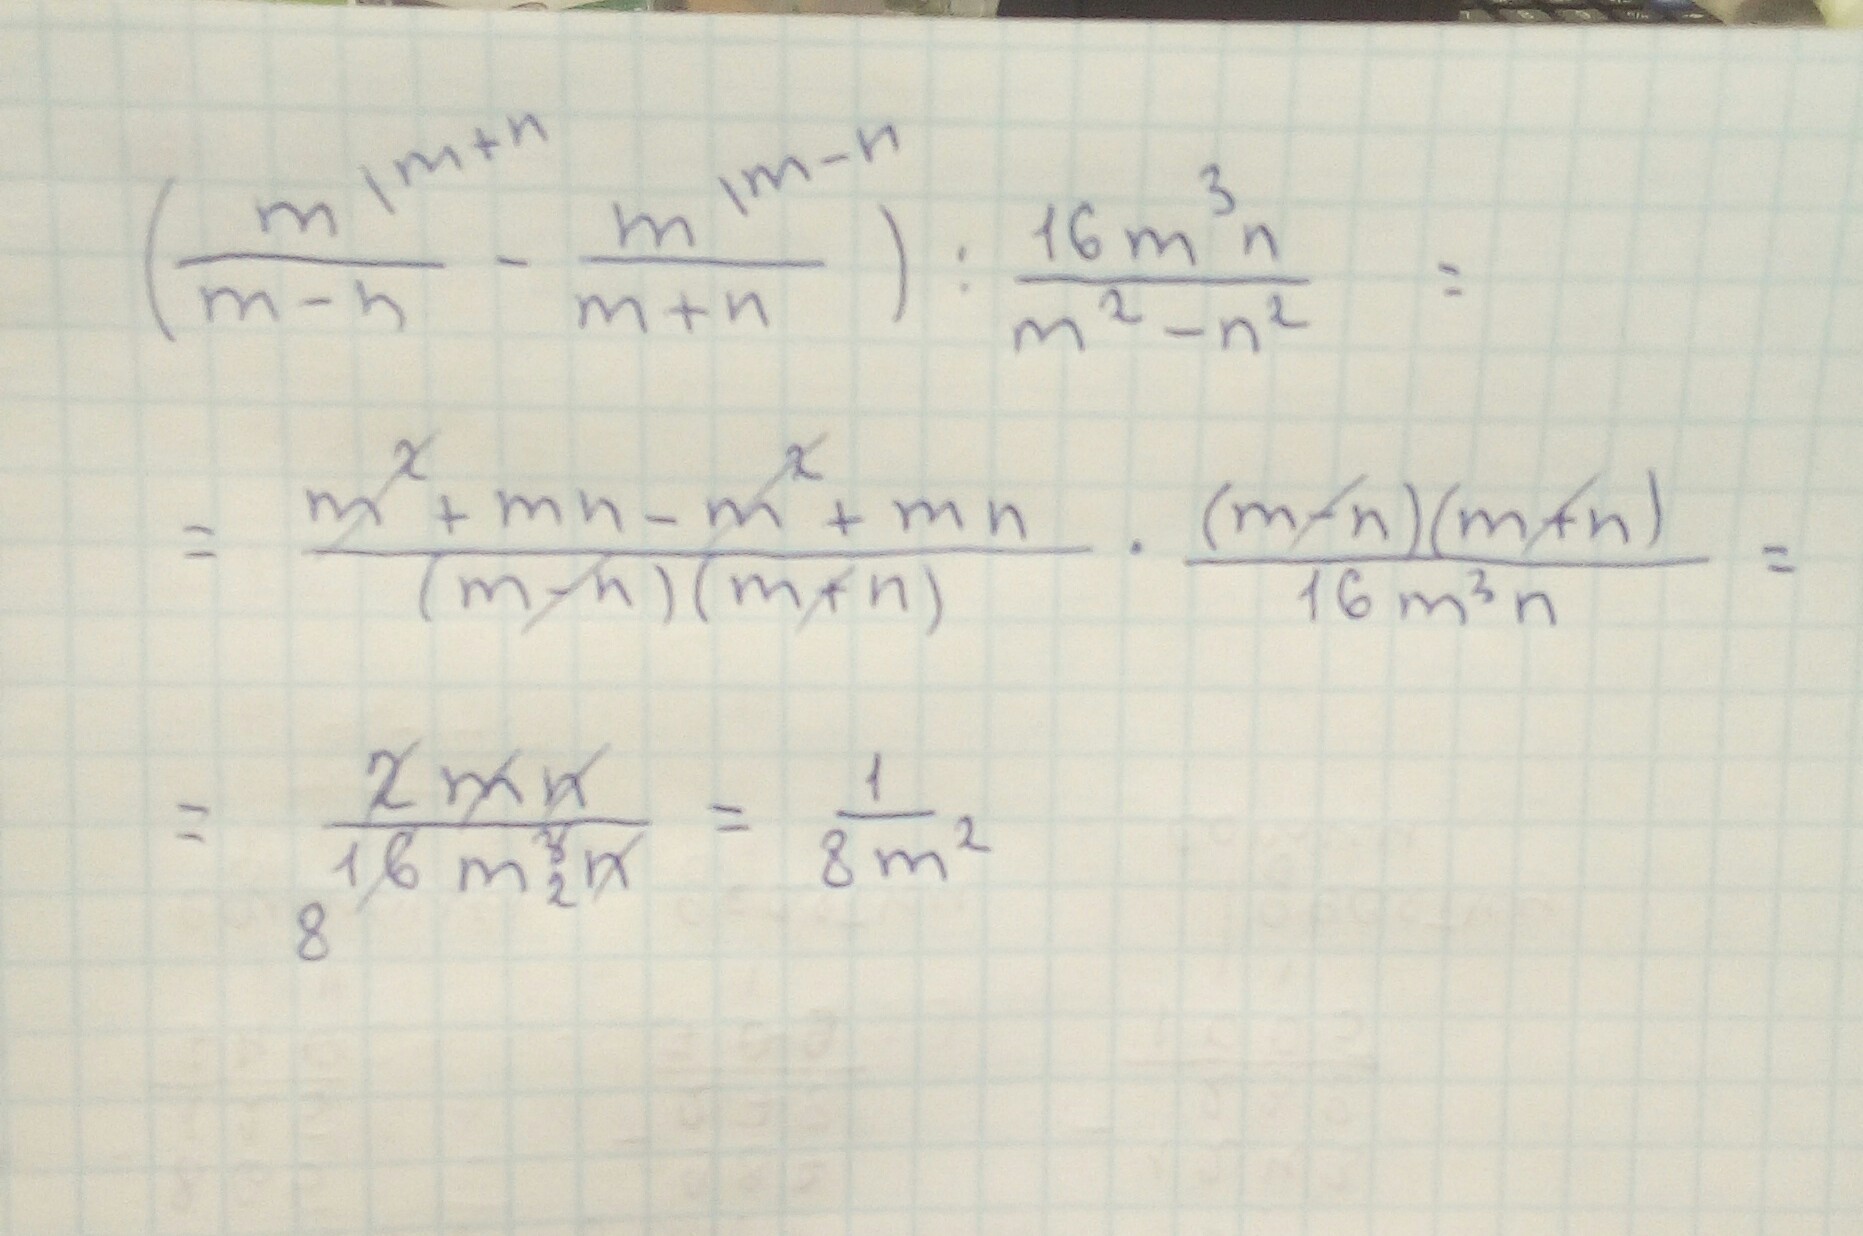 (m^{|m+n}/(m-n) - m^{|m-n}/(m+n)) : 16m³n/(m²-n²) =
= (m²+mn-m²+mn)/((m-n)(m+n)) · ((m-n)(m+n))/(16m³n) =
= 2mn/(16m³n) 8 2 = 1/(8m²)